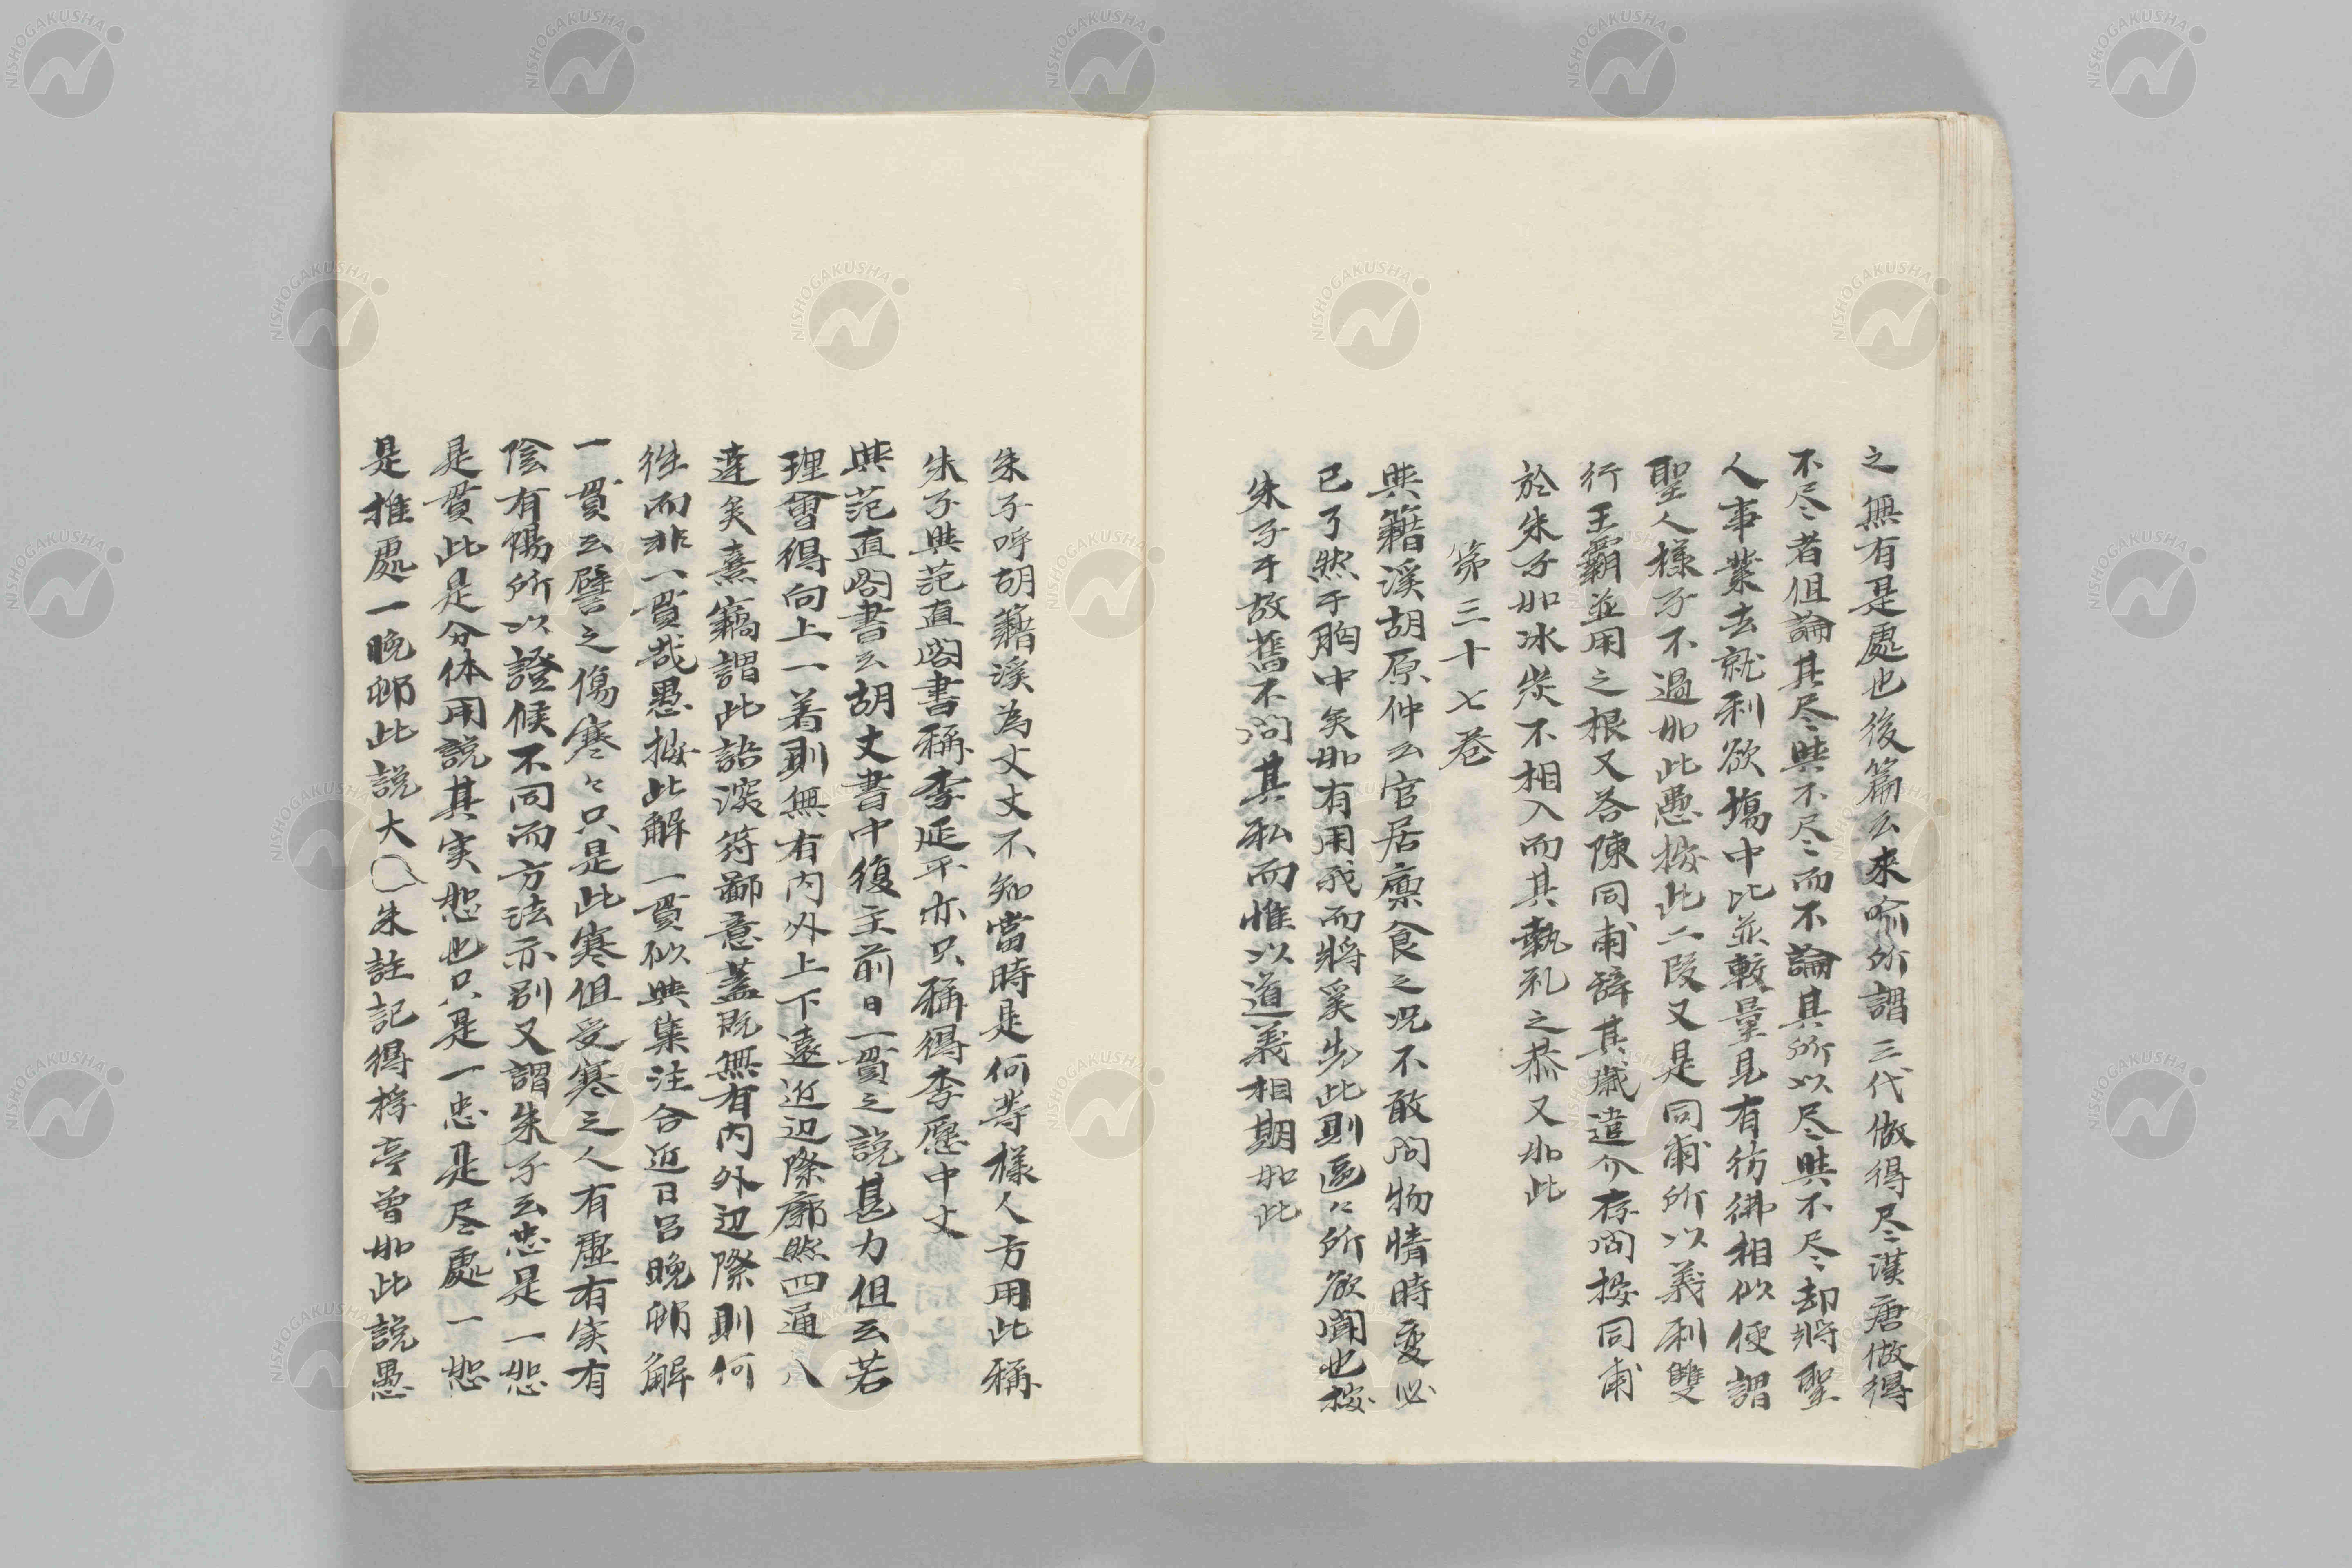 之無有是處也後篇云来喻所謂三代做得尽漢唐做得
不尽者但論其尽與不尽而不論其所以尽與不尽却將聖
人事業去就利欲塲中比並較量見有彷彿相似便謂
聖人樣子不過如此愚按此二段又是同甫所以義利雙
行王霸並用之根又答陳同甫辞其歳遣介存問按同甫
於朱子如冰炭不相入而其執礼之恭又如此
第三十七巻
與籍溪胡原仲云官居廩食之况不敢問物情時变必
已了然于胸中矣如有用我而將奚先此則區〻所欲聞也按
朱子于故舊不問其私而惟以道義相期如此
朱子呼胡籍溪為丈丈不知當時是何等樣人方用此稱
朱子與范直閣書稱李延平亦只稱得李愿中丈
與范直閣書云胡丈書中復主前日一貫之説甚力但云若
理會得向上一着則無有内外上下遠近辺際廓然四通八
達矣熹竊謂此語深符鄙意蓋既無有内外辺際則何
徃而非一貫哉愚按此解一貫似與集注合近日呂晩邨解
一貫云譬之傷寒〻只是此寒但受寒之人有虚有実有
陰有陽所以證候不同而方法亦別又謂朱子云忠是一恕
是貫此是分体用説其実恕也只是一忠是尽處一恕
是推處一晩邨此説大朱註記得桴亭曽如此説愚
NISHOGAKUSHA